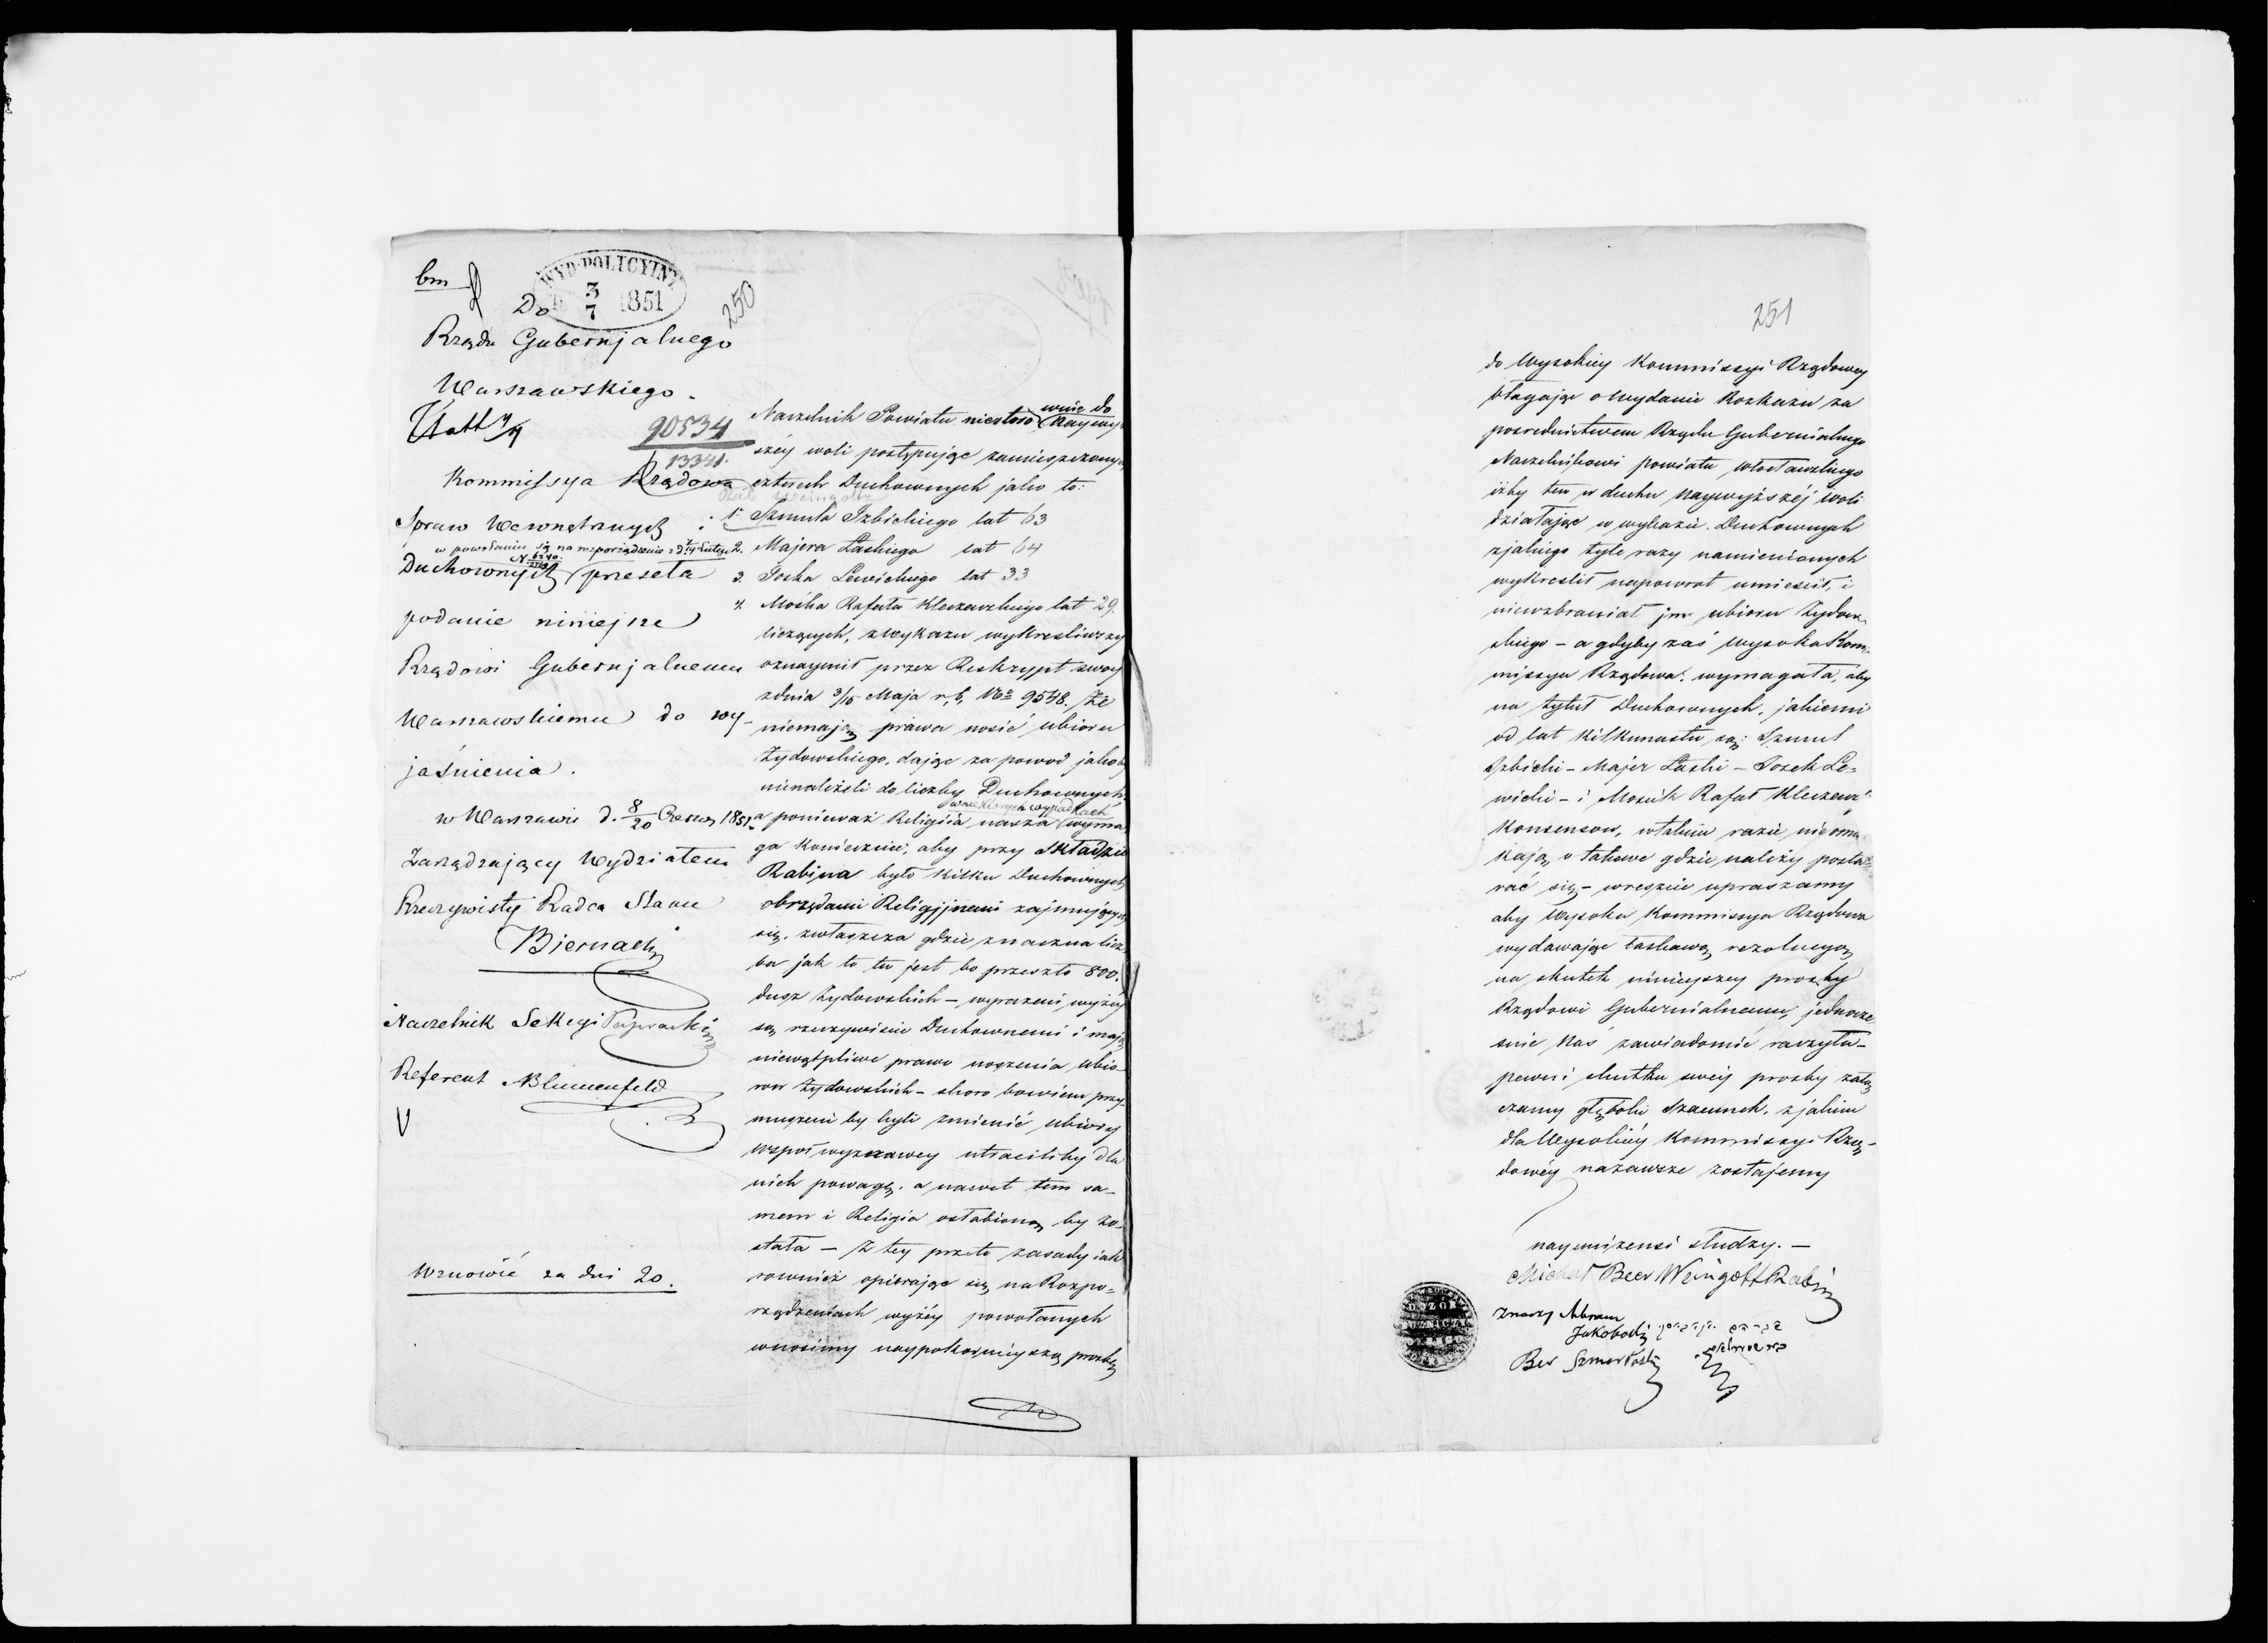 bm
WYD. POLICYINY
3
7
1851
250
Do
Rządu Gubernjalnego
Warszawskiego.
90534
13341.
Kommissya Rządowa
Spraw Wewnętrznych i
w powołaniu się na rozporządzenie z d. Lutego
Duchownych przeseła
podanie niniejsze
Rządowi Gubernjalnemu
Warszawskiemu do wy-
jaśnienia.
w Warszawie d. 8/20 Czerwca 1851.
Zarządzający Wydziałem
Rzeczywisty Radca Stanu
Biernacki
Naczelnik Sekcyi Paprocki
Referent Blumenfeld
V
Wznowić za dni 20.
Naczelnik Powiatu niestosownie do Naywyż
széy woli postępując zamieszczonych
czterech Duchownych jako to:
1. Szmula Izbickiego lat 63
2. Majera Laskiego lat 64
3. Joska Lewickiego lat 33
4. Mośka Rafała Kleczewskiego lat 29.
liczących, z wykazu wykreśliwszy
oznaymił przez Reskrypt swoy
z dnia 3/15 Maja r. b. No 9548. że
niemają prawa nosić ubioru
Żydowskiego, dając za powod jakoby
nienależeli do liczby Duchownych.
w niektórych wypadkach
a ponieważ Religiia nasza wyma
ga koniecznie, aby przy Składzie
Rabina było kilku Duchownych
obrzędami Religijnemi zajmujących
się, zwłaszcza gdzie znaczna licz
ba jak to tu jest bo przeszło 800.
dusz Żydowskich – wyrażeni wyżéy
są rzeczywiście Duchownemi i mają
niewątpliwe prawo noszenia ubio
row Żydowskich – skoro bowiem przy-
muszeni by byli zmienić ubiory
wspołwyznawcy utraciliby dla
nich powagę, a nawet tem sa-
mem i Religia osłabioną by zo-
stała – Z tey przeto zasady jak
rownież opierając się na Rozpo-
rządzeniach wyżéy powołanych
wnosimy naypokornieyszą prozbę
251
do Wysokiey Kommissyi Rządowey
błagając o wydanie Rozkazu za
posrednictwem Rządu Gubernialnego
Naczelnikowi powiatu Włocławskiego
iżby ten w duchu Naywyższéj woli
działając w wykazie Duchownych
zjakiego tyle razy namienionych
wykreslił napowrot umiescił, i
niewzbraniał jm ubioru Żydow-
skiego – a gdyby zaś Wysoka Kom-
missya Rządowa wymagała, aby
na tytuł Duchownych, jakiemi
od lat kilkunastu są: Szmul
Izbicki – Majer Laski – Josek Le-
wicki – i Mosiek Rafał Kleczew:
Konsensow, w takim razie nieomie
kają o takowe gdzie należy posta-
rać się – wreszcie upraszamy
aby Wysoka Kommissya Rządowa
wydawając łaskawą rezolucyą
na skutek ninieyszey prozby
Rządowi Gubernialnemu, jednocze
snie Nas zawiadomić raczyła –
pewni skutku swéy prozby załą
czamy głęboki szacunek, z jakim
dla Wysokiéy Kommissyi Rzą-
dowéy nazawsze zostajemy
nayuniżensi słudzy. –
Michał Beer Weingott Rabin
znaczy Abram
Jakobocki
Ber Szmor
DOZOR
BOZNICZY